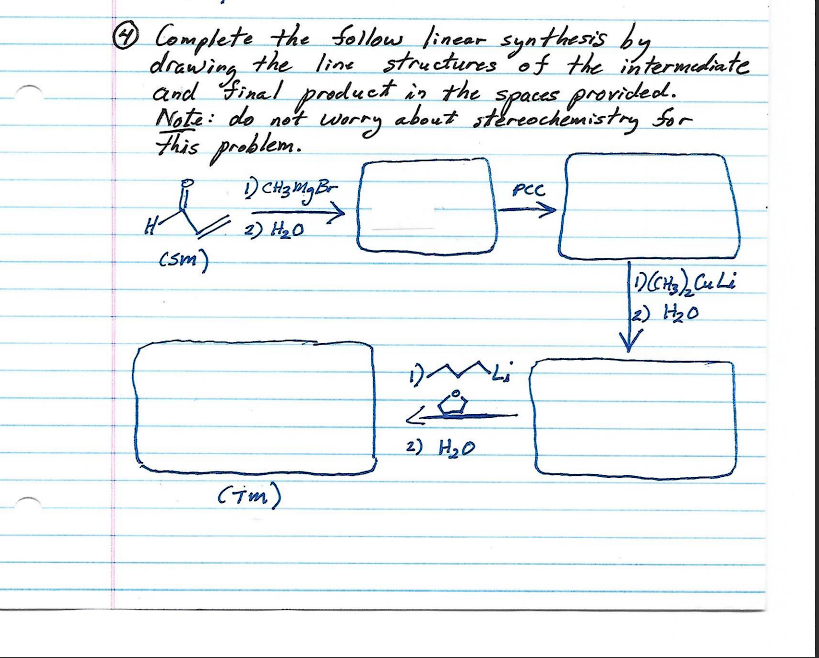 ④ Complete the follow linear synthesis by
drawing the line structures of the intermediate
and final product in the spaces provided.
Note: do not worry about stereochemistry for
this problem.
O
H
(SM)
1) CH3MgBr
2) H2O
PCC
1) (CH3)2CuLi
2) H2O
1) Li
O
2) H2O
(TM)